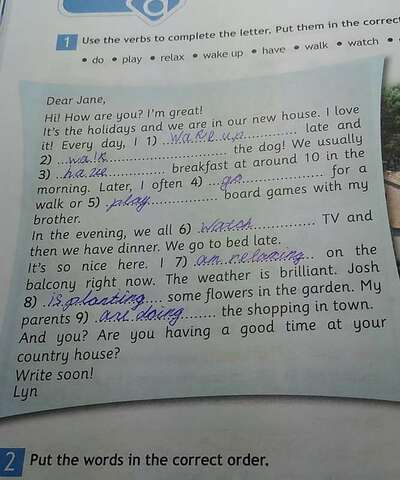 1 Use the verbs to complete the letter. Put them in the correct
• do • play • relax • wake up • have • walk • watch •
Dear Jane,
Hi! How are you? I'm great!
It's the holidays and we are in our new house. I love
it! Every day, I 1) wake up late and
2) walk the dog! We usually
3) have breakfast at around 10 in the
morning. Later, I often 4) go for a
walk or 5) play board games with my
brother.
In the evening, we all 6) watch TV and
then we have dinner. We go to bed late.
It's so nice here. I 7) am relaxing on the
balcony right now. The weather is brilliant. Josh
8) is planting some flowers in the garden. My
parents 9) are doing the shopping in town.
And you? Are you having a good time at your
country house?
Write soon!
Lyn
2 Put the words in the correct order.